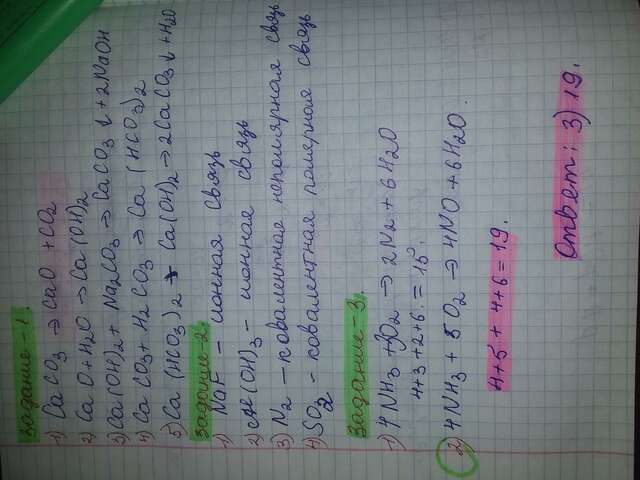 Задание-1.
1) CaCO3 → CaO + CO2
2) CaO + H2O → Ca(OH)2
3) Ca(OH)2 + Na2CO3 → CaCO3 ↓ + 2NaOH
4) CaCO3 + H2CO3 → Ca(HCO3)2
5) Ca(HCO3)2 + Ca(OH)2 → 2CaCO3 ↓ + H2O
Задание-2.
1) NaF – ионная связь
2) Al(OH)3 – ионная связь
3) N2 – ковалентная неполярная связь
4) SO2 – ковалентная полярная связь
Задание-3.
1) 4NH3 + 3O2 → 2N2 + 6H2O
4+3+2+6 = 15.
2) 4NH3 + 5O2 → 4NO + 6H2O.
4+5+4+6=19.
Ответ: 3) 19.